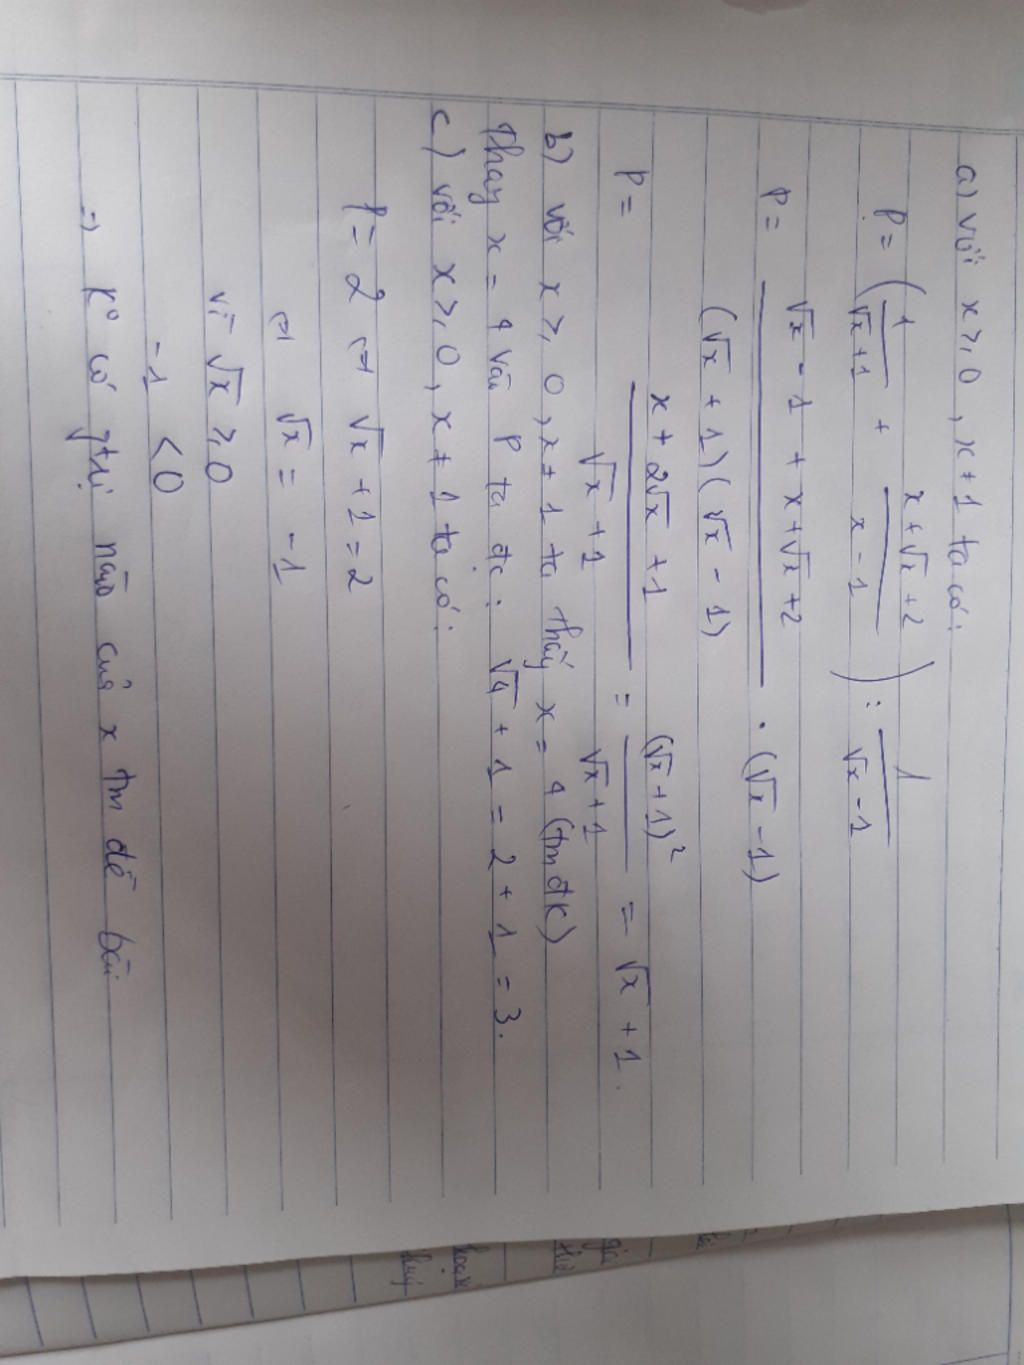 a) với x ≥ 0, x ≠ 1 ta có:
P = (1/(√x+1) + (x+√x+2)/(x-1)) : 1/(√x-1)
P = (√x - 1 + x+√x+2)/((√x + 1)(√x - 1)) . (√x -1)
P = (x + 2√x + 1)/(√x + 1) = (√x+1)²/(√x+1) = √x + 1.
b) với x ≥ 0, x ≠ 1 ta thấy x = 4 (tm đk)
Thay x = 4 vào P ta đc: √4 + 1 = 2 + 1 = 3.
c) với x ≥ 0, x ≠ 1 ta có:
P = 2 ⇔ √x + 1 = 2
⇔ √x = -1
vì √x ≥ 0
-1 < 0
⇒ K° có gtrị nào của x tm đề bài